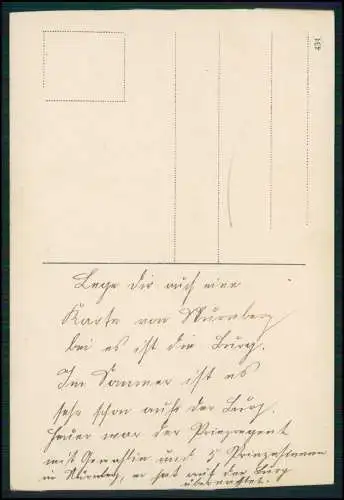 434
Lege dir auch eine
Karte von Nürnberg
bei es ist die Burg.
Im Sommer ist es
sehr schön auf der Burg.
Heuer war der Prinzregent
mit Gemahlin und 5 Prinzessinnen
in Nürnberg, er hat auf der Burg
übernachtet.